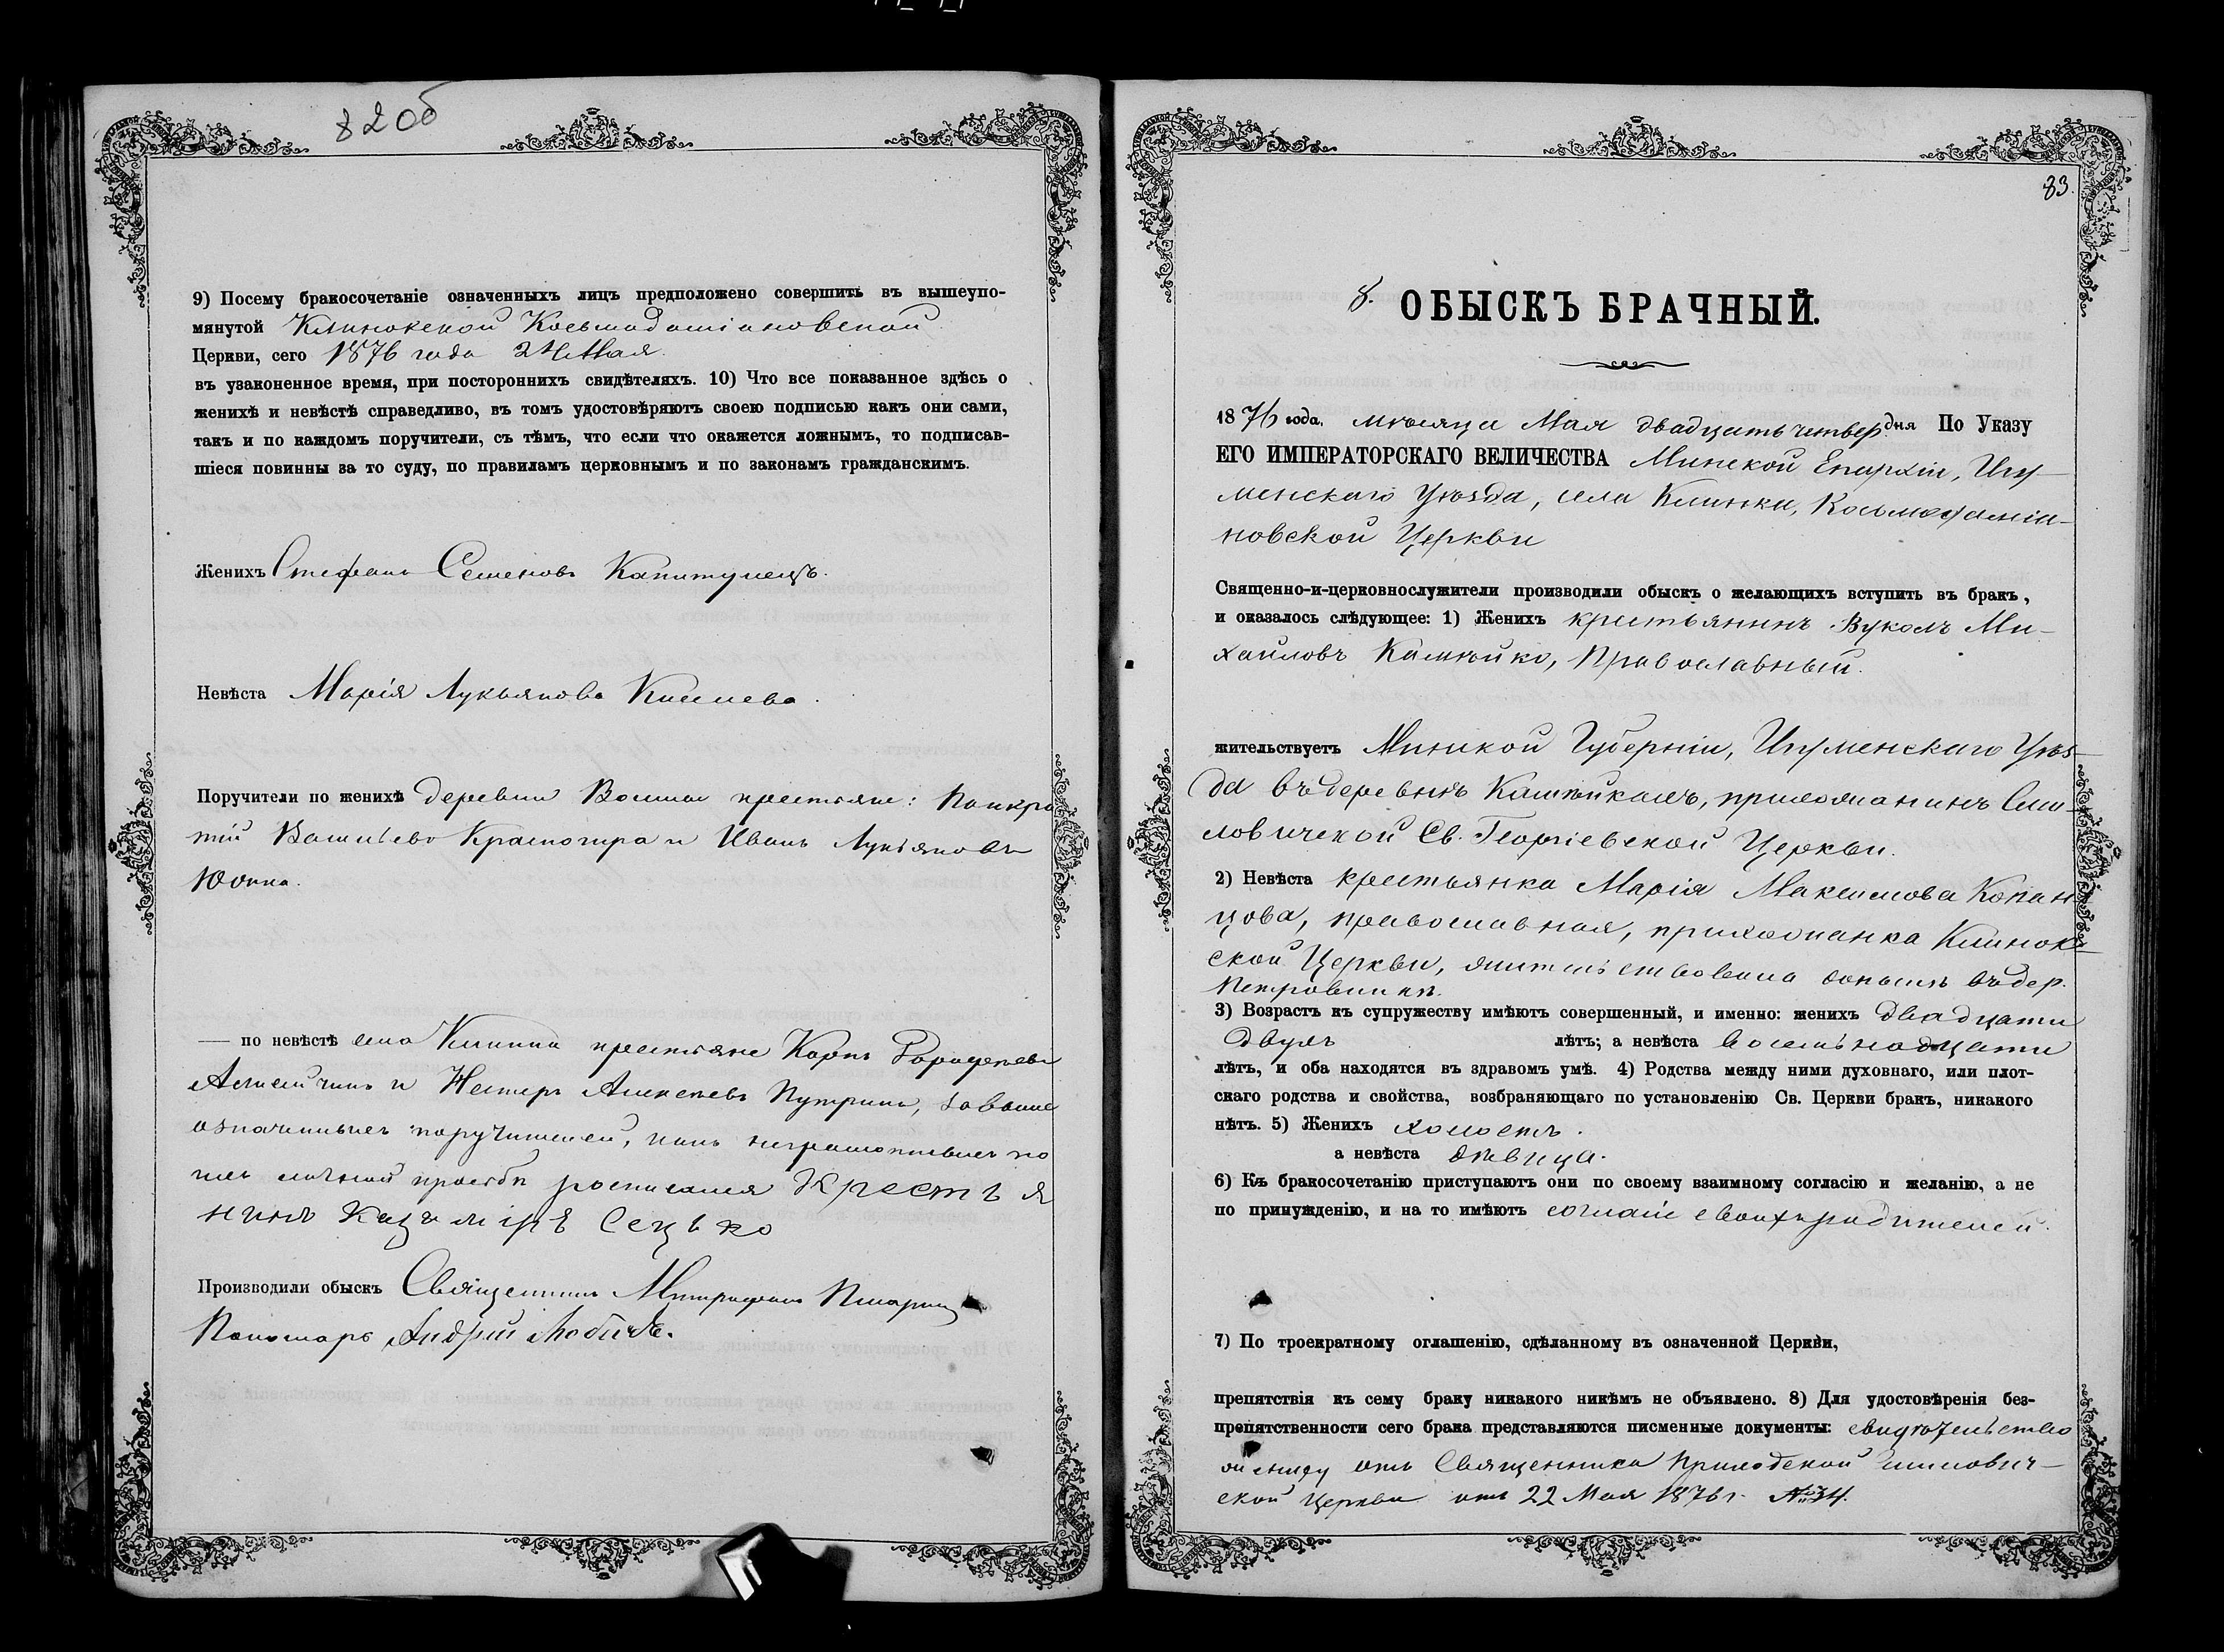 82об
9) Посему бракосочетаніе означенныхъ лицъ предположено совершить въ вышеупо-
мянутой Клинокской Косьмодаміановской
Церкви, сего 1876 года 24 Мая
въ узаконенное время, при постороннихъ свидѣтеляхъ. 10) Что все показанное здѣсь о
женихѣ и невѣстѣ справедливо, въ томъ удостовѣряютъ своею подписью какъ они сами,
такъ и по каждомъ поручители, съ тѣмъ, что если что окажется ложнымъ, то подписав-
шіеся повинны за то суду, по правиламъ церковнымъ и по законамъ гражданскимъ.
Женихъ Стефанъ Семеновъ Капитунецъ.
Невѣста Марія Лукьянова Киселева.
Поручители по женихѣ деревни крестьяне: Панкра
тій Васильевъ и Иванъ Лукьяновъ
Юхна.
— по невѣстѣ села Клинка крестьяне Карпъ
и Несторъ Алексѣевъ, за всѣхъ
означенныхъ поручителей, какъ неграмотныхъ по
ихъ личной просьбѣ росписался Крестья
нинъ Казиміръ Сецько
Производили обыскъ Священникъ Митрофанъ
Пономарь Андрей
83.
8. ОБЫСКЪ БРАЧНЫЙ.
1876 года, мѣсяца Мая двадцать четвер. дня По Указу
ЕГО ИМПЕРАТОРСКАГО ВЕЛИЧЕСТВА Минской Епархіи, Игу-
менскаго Уѣзда, села Клинки, Косьмодаміа-
новской Церкви
Священно-и-церковнослужители производили обыскъ о желающихъ вступить въ бракъ,
и оказалось слѣдующее: 1) Женихъ крестьянинъ Вуколъ Ми-
хайловъ Камѣйко, православный.
жительствуетъ Минской Губерніи, Игуменскаго Уѣз-
да въ деревнѣ Камѣйкахъ, прихожанинъ Сми-
ловичской Св. Георгіевской Церкви.
2) Невѣста крестьянка Марія Максимова Копан-
цова, православная, прихожанка Клинок-
ской Церкви, жительствовала въ дер.
3) Возрастъ къ супружеству имѣютъ совершенный, и именно: женихъ двадцати
двухъ лѣтъ; а невѣста восемьнадцати
лѣтъ, и оба находятся въ здравомъ умѣ. 4) Родства между ними духовнаго, или плот-
скаго родства и свойства, возбраняющаго по установленію Св. Церкви бракъ, никакого
нѣтъ. 5) Женихъ холостъ.
а невѣста дѣвица.
6) Къ бракосочетанію приступаютъ они по своему взаимному согласію и желанію, а не
по принужденію, и на то имѣютъ согласіе своихъ родителей.
7) По троекратному оглашенію, сдѣланному въ означенной Церкви,
препятствія къ сему браку никакого никѣмъ не объявлено. 8) Для удостовѣренія без-
препятственности сего брака представляются писменные документы: свидѣтельство
отъ Священника приходской Смилович-
ской Церкви отъ 22 Мая 1876 г. № 34.